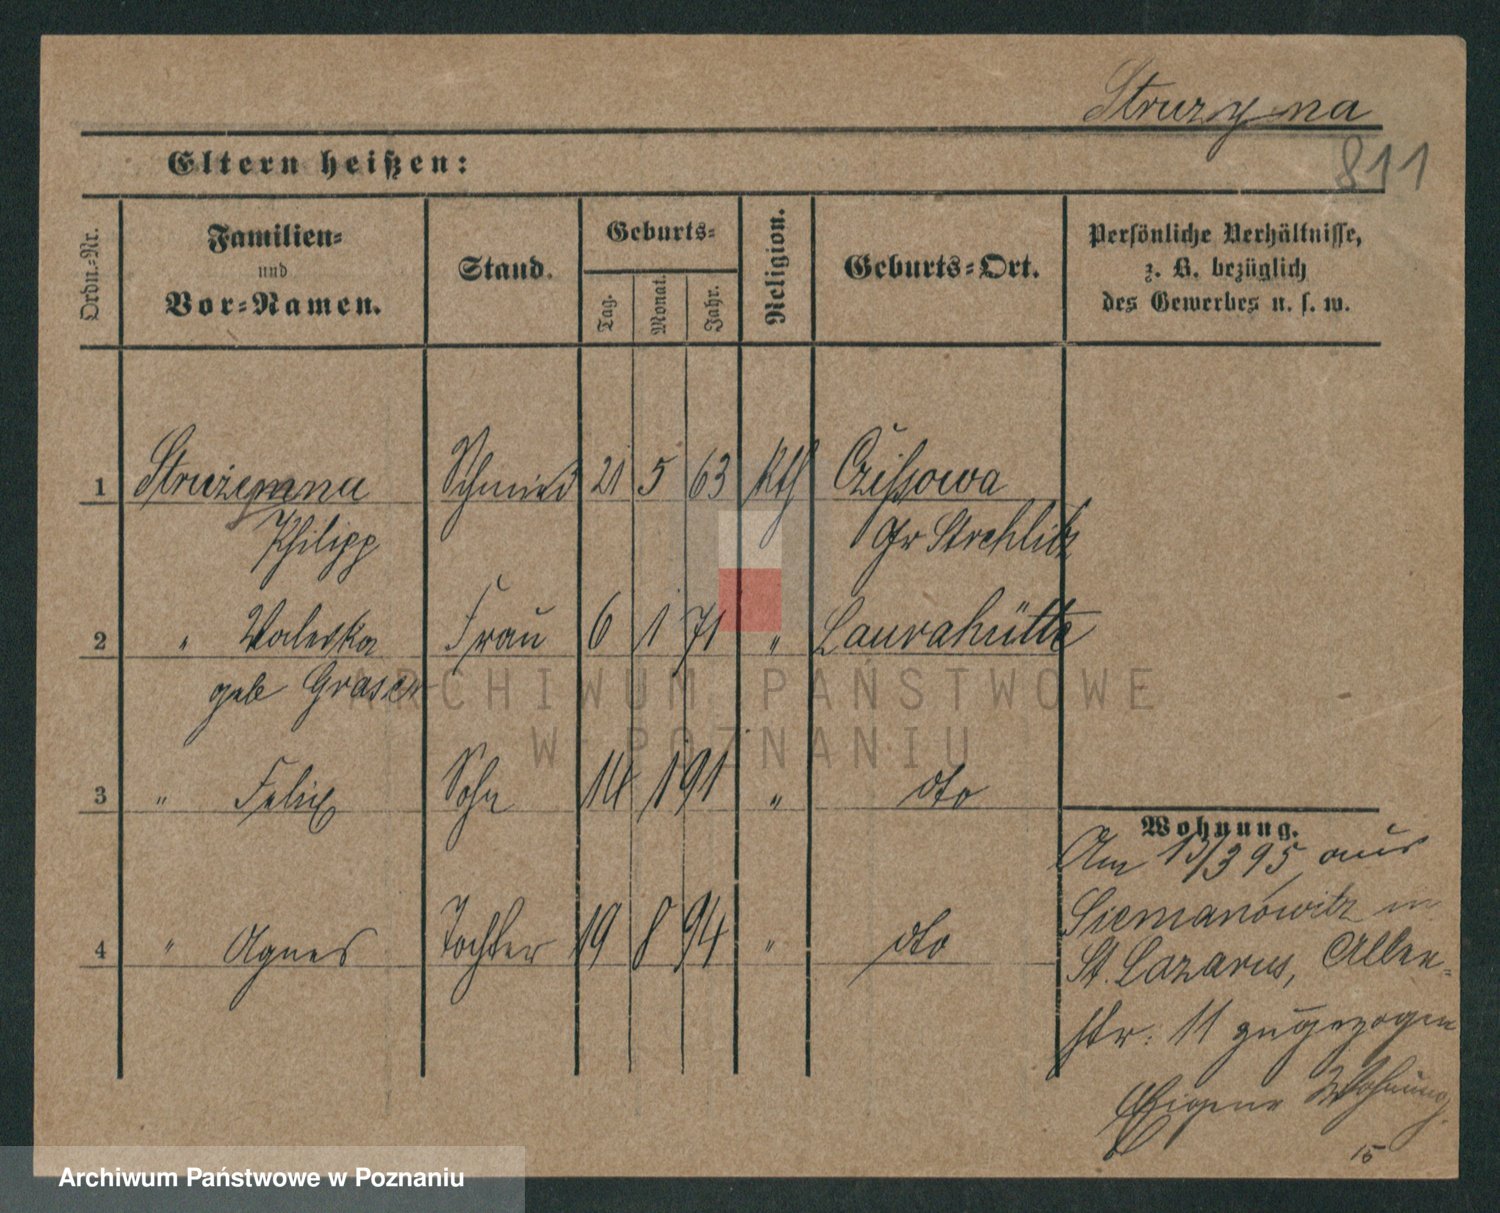 Struzyna
811
Eltern heißen:
Ordn.-Nr.
Familien-
und
Vor-Namen.
Stand.
Geburts-
Tag.
Monat.
Jahr.
Religion.
Geburts-Ort.
Persönliche Verhältnisse,
z. B. bezüglich
des Gewerbes u. s. w.
1 Schmied 21 5 63 Kth Czissowa
Philipp Gr Strehlitz
2 " Valeska Frau 6 1 71 " Laurahütte
geb Graser
ARCHIWUM PAŃSTWOWE
W POZNANIU
3 " Felix Sohn 14 1 91 " dto
4 " Agnes Tochter 19 8 94 " dto
Wohnung.
Am 13/3 95 aus
Siemanowitz in
St. Lazarus, Alben-
str. 11 zugezogen
Eigene Wohnung.
15
Archiwum Państwowe w Poznaniu